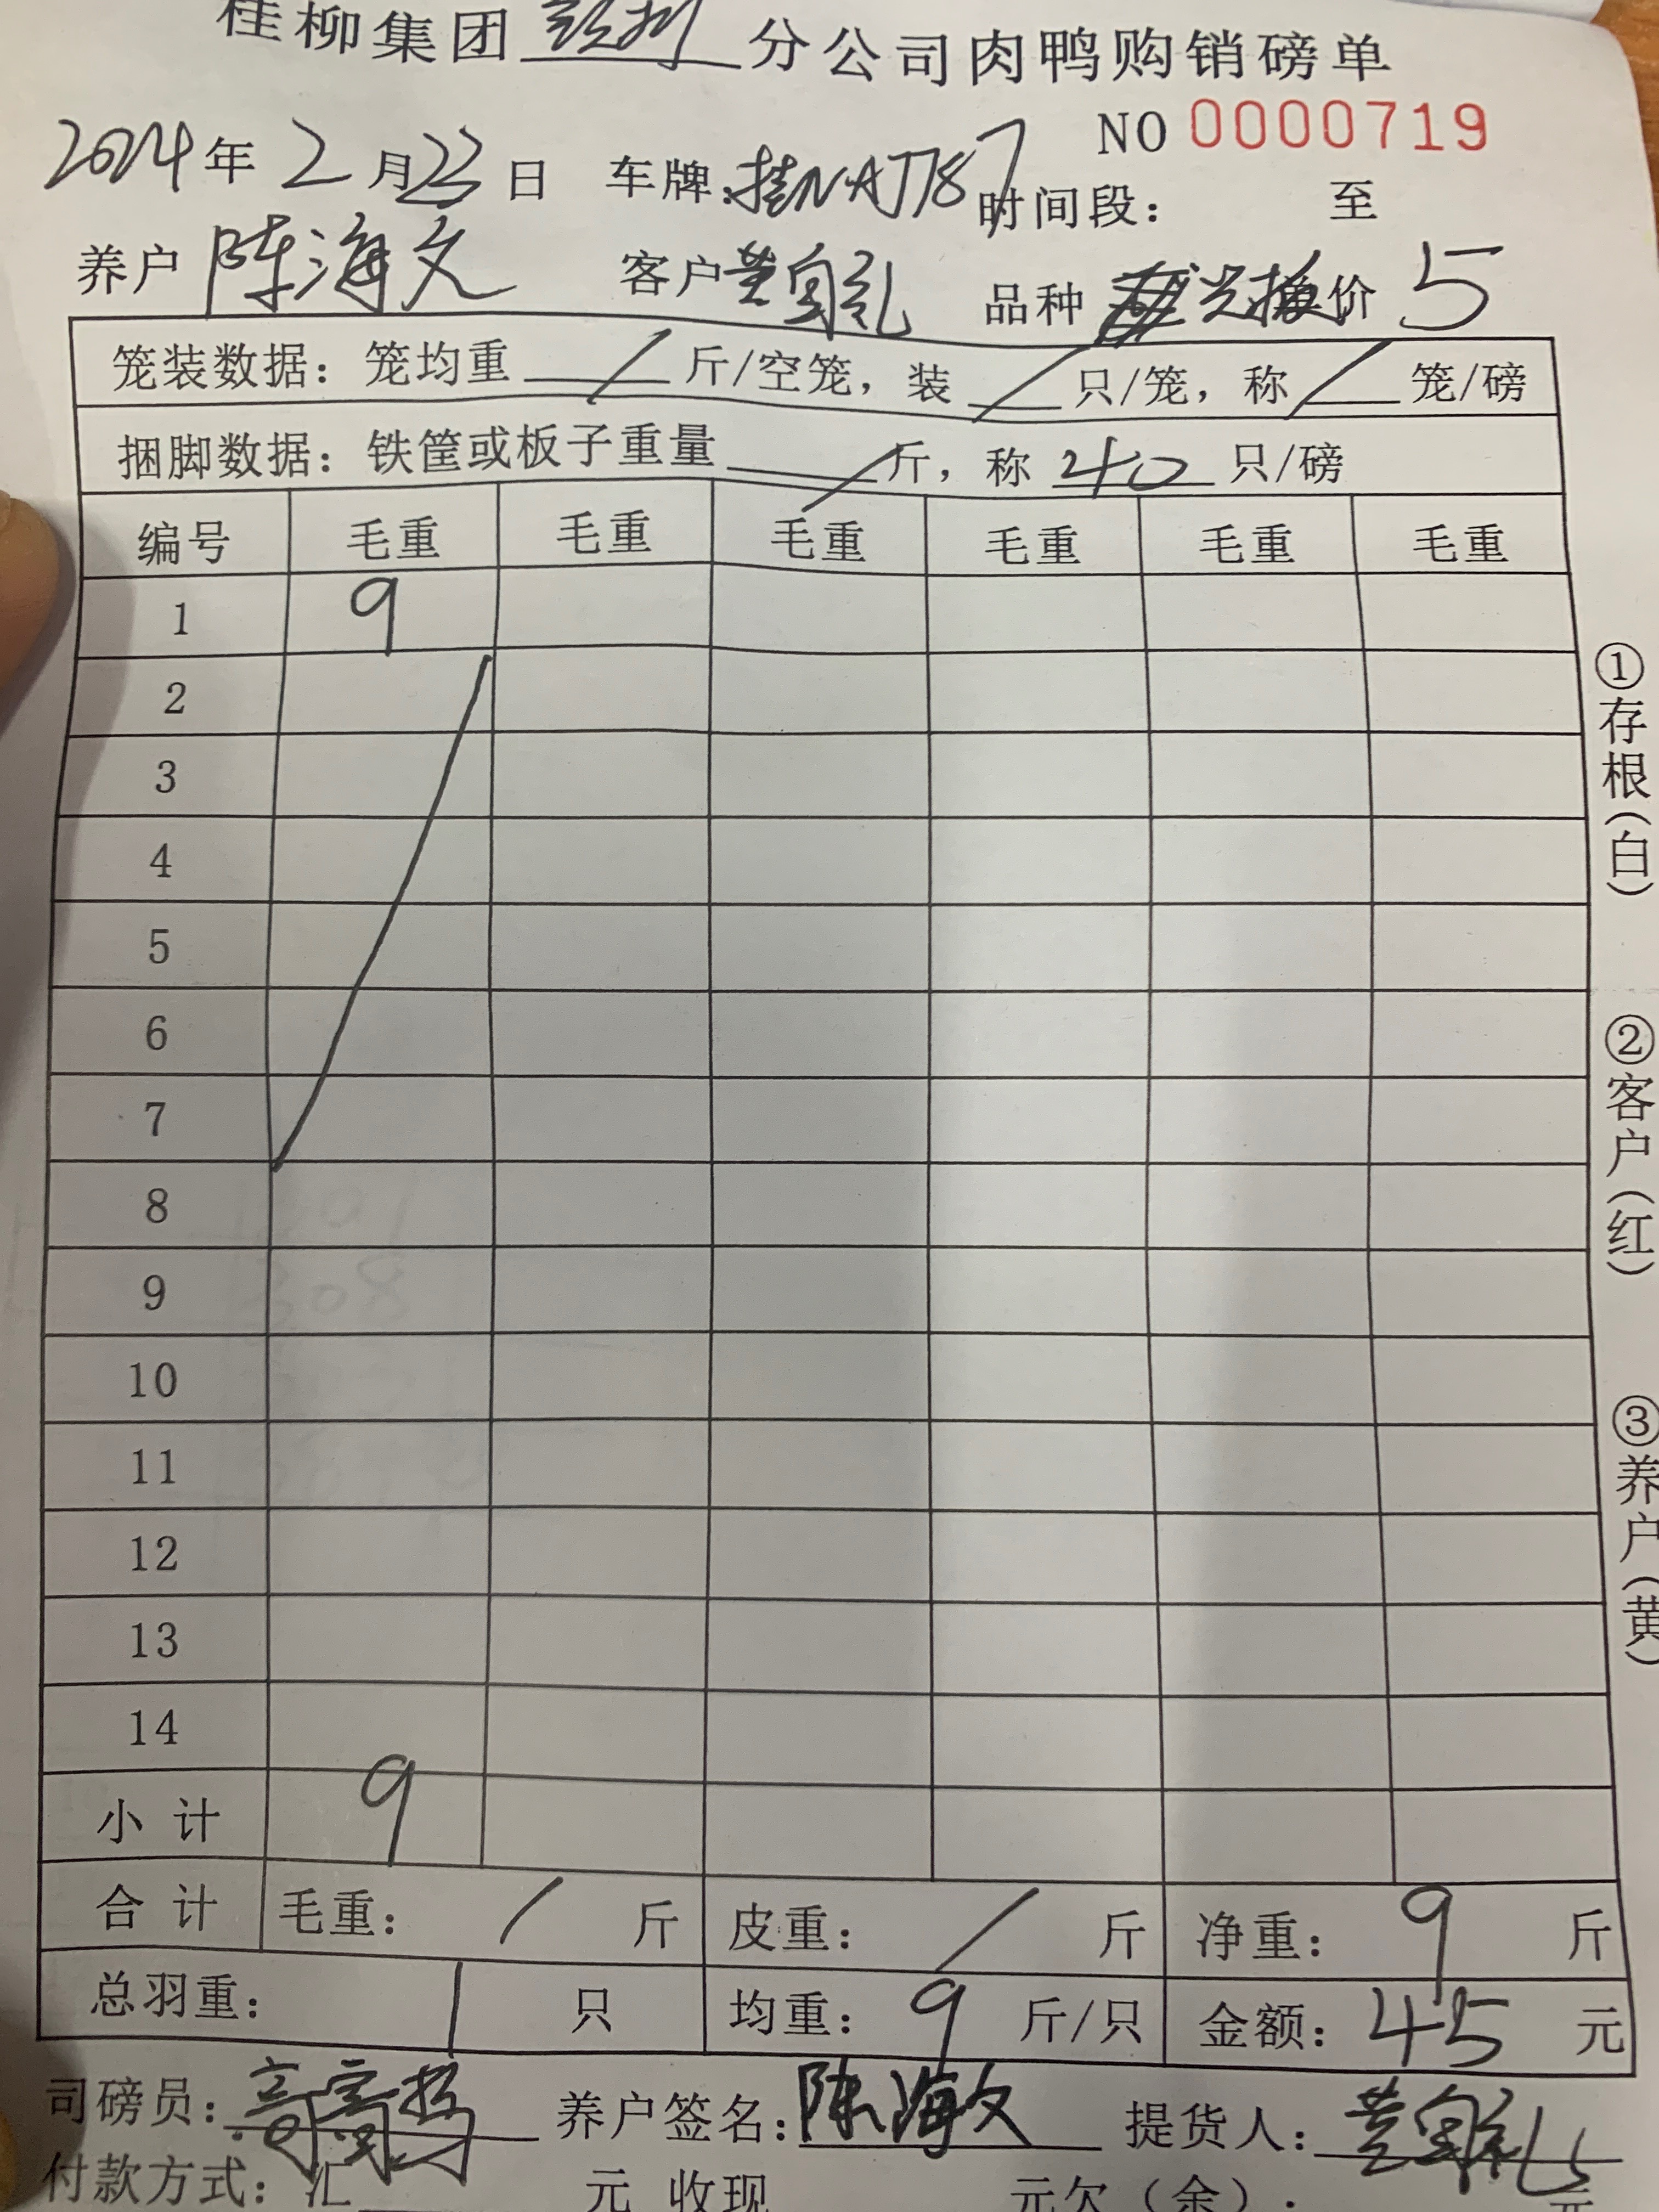 桂柳集团 分公司肉鸭购销磅单
NO 0000719
2024年 2月23日 车牌:桂NAJ787 时间段: 至
养户 陈海文 客户 黄 礼 品种 价 5
笼装数据: 笼均重 / 斤/空笼, 装 / 只/笼, 称 / 笼/磅
捆脚数据: 铁筐或板子重量 / 斤, 称 40 只/磅
编号 毛重 毛重 毛重 毛重 毛重 毛重
1 9
2
3
4
5
6
7
8
9
10
11
12
13
14
小计 9
合计 毛重: / 斤 皮重: / 斤 净重: 9 斤
总羽重: 1 只 均重: 9 斤/只 金额: 45 元
司磅员: 养户签名: 陈海文 提货人: 黄 礼
付款方式: 汇 元 收现 元欠(余): 元
①存根(白)
②客户(红)
③养户(黄)